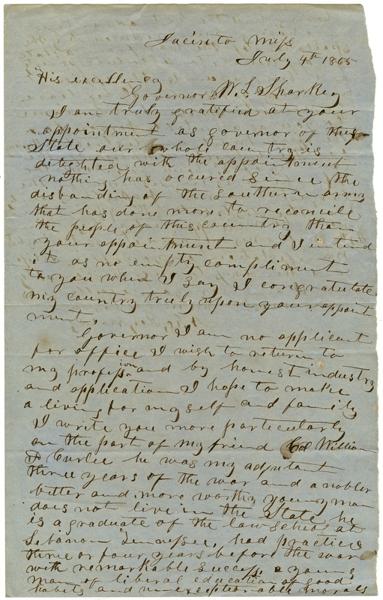 Jacinto Miss
July 4th 1865
His excellency
Governor W. L. Sharkey
I am truly gratified at your
appointment as governor of this
State our whole country is
delighted with the appointment
nothing has occured since the
disbanding of the Southern army
that has done more to reconcile
the people of this country than
your appointment and I intend
it as no empty compliment
to you when I say I congratulate
my country truly upon your appoint
ment.
Governor I am no applicant
for office I wish to return to
my profession and by honest industry
and application I hope to make
a living for myself and family
I write you more particularly
on the part of my friend Col William
he was my adjutant
three years of the war and a nobler
better and more worthy young man
does not live in the State, he
is a graduate of the law school at
Lebanon Tennessee, had practiced
three or four years before the war
with remarkable success, a young
man of liberal education of good
habits and unexceptionable morals